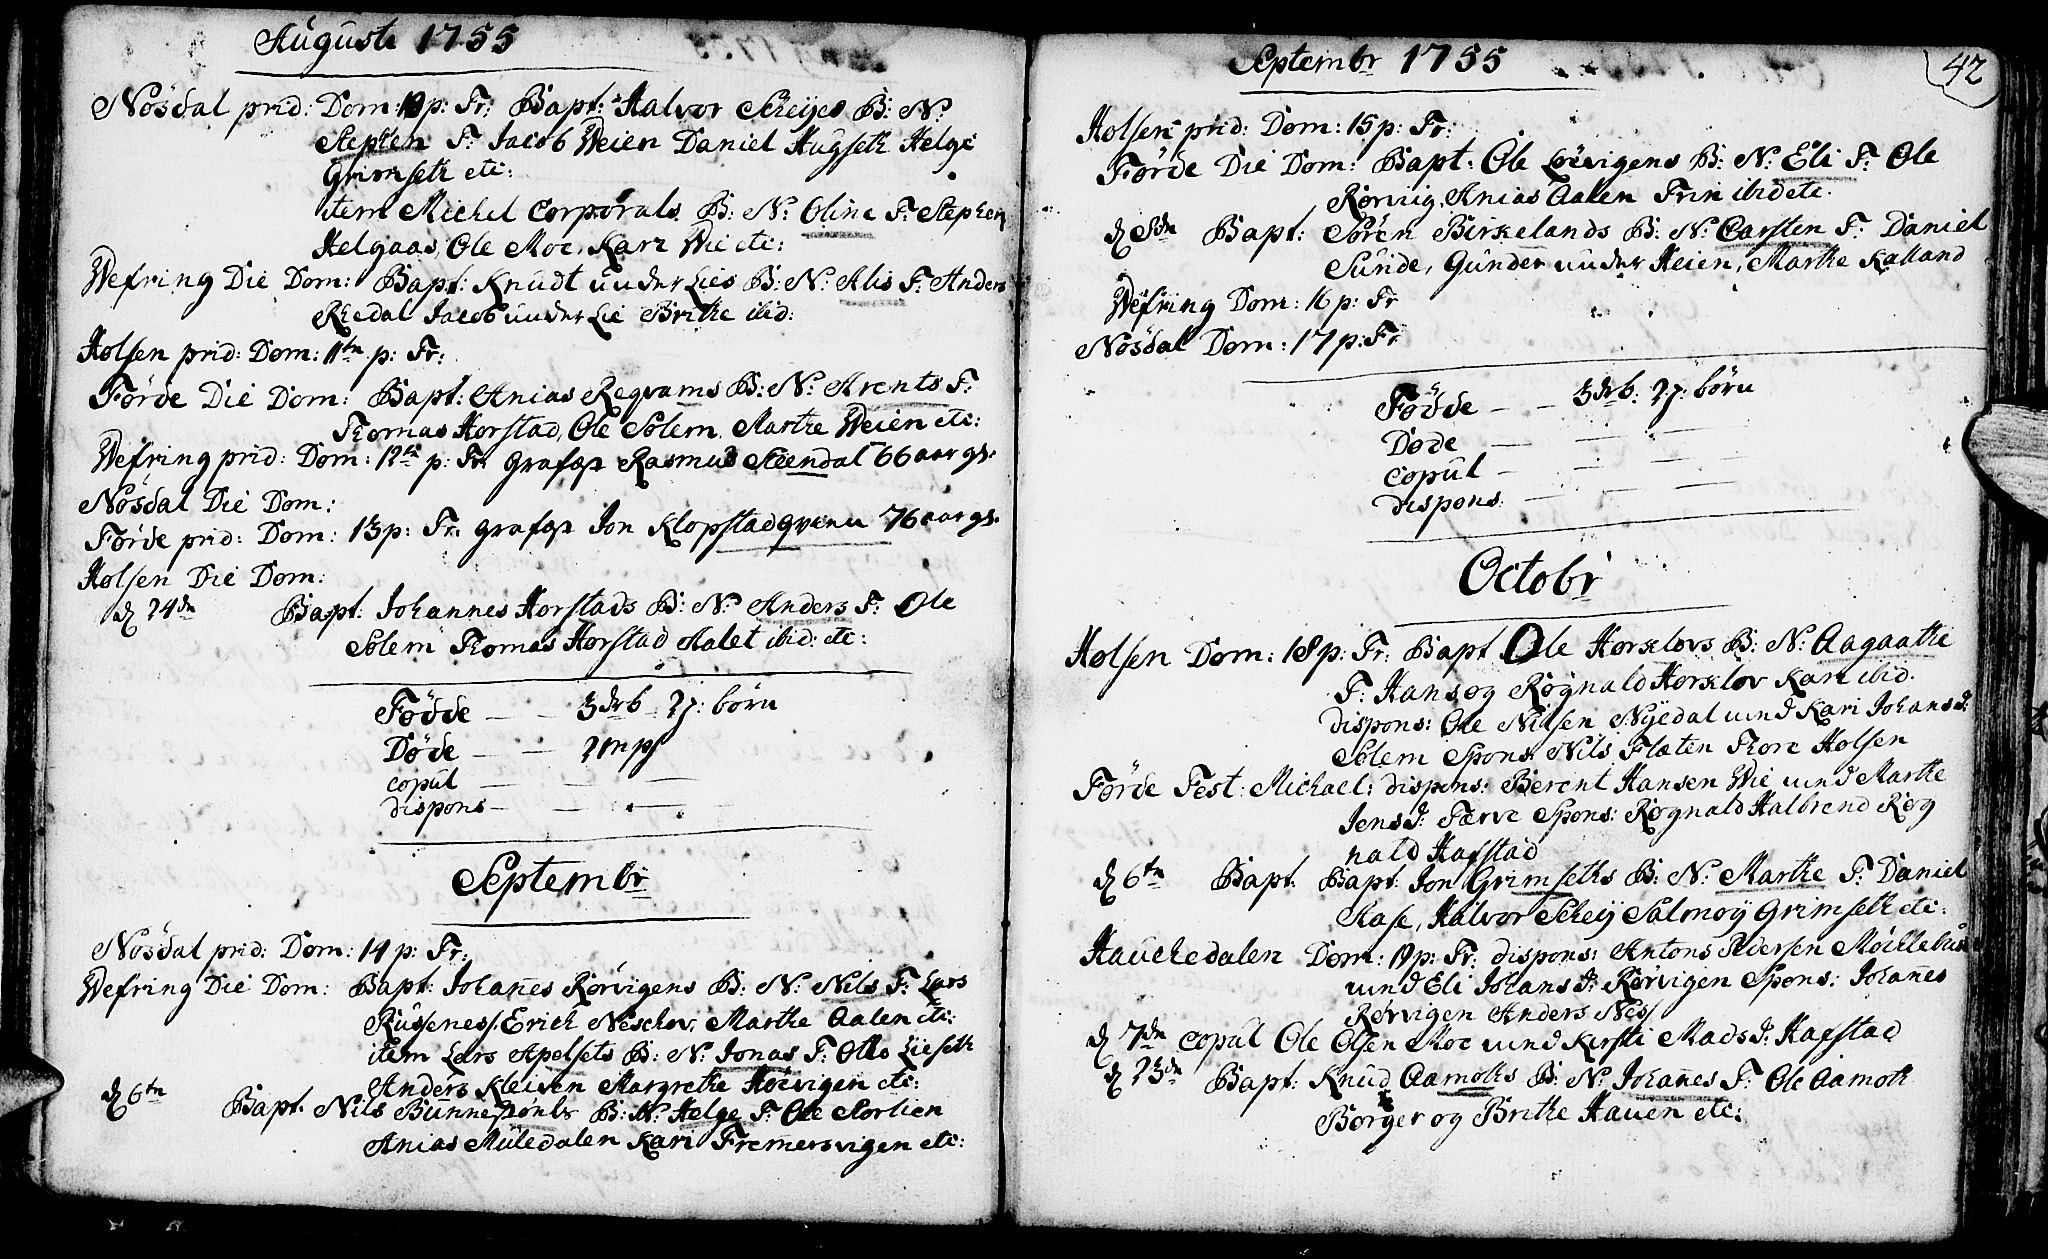 Auguste 1755
Nösdal prid: Dom: 10 p: Tr: Bapt: Halvor Scheyes B: N:
Stephen F: Jacob Weien Daniel Hugseth Helge
Grimseth etc:
item Michel Corporals B: N: Oline F: Stephen
Helgaas, Ole Moe, Kari Wie etc:
Wefring Die Dom: Bapt: Knudt under Lies B: N: Alis F: Anders
Rhedal Jacob under Lie Brithe ibid:
Holsen prid: Dom: 11te p: Tr:
Förde Die Dom: Bapt: Anias Reqvams B: N: Arents F:
Thomas Horstad, Ole Solem, Marthe Weien etc:
Wefring prid: Dom: 12te p: Tr: Grafæst Rasmus Steendal 66 aar gl.
Nösdal Die Dom:
Förde prid: Dom: 13 p: Tr: grafæst Jon Klopstad qvenu 76 aar gl.
Holsen Die Dom:
d 24de Bapt. Johannes Horstads B: N: Anders F: Ole
Solem Thomas Horstad Malet ibid: etc:
Födde — — 3drb 2p: börn
Döde — — 2 mps
copul — — —
dispons — — —
Septembr
Nösdal prid: Dom: 14 p: Tr:
Wefring Die Dom: Bapt: Johanes Rörvigens B: N: Nils F: Lars
Russenes, Erich Neschov, Marthe Aalen etc:
item Lars Apelsets B: N: Jonas F: Otto Lieseth
Anders Kleiven Margrethe Höevigen etc:
d 6te Bapt. Nils B: N: Helge F: Ole Storlien
Anias Muledalen Kari Fremersvigen etc:
Septembr 1755
42
Holsen prid: Dom: 15 p: Tr:
Förde Die Dom: Bapt: Ole Löevigens B: N: Eli F: Ole
Rörviig, Anias Aalen Trin ibid etc.
d 8de Bapt: Sören Birkelands B: N: Carsten F: Daniel
Sunde, Gunder under Heien, Marthe Kalland
Wefring Dom: 16 p: Tr
Nösdal Dom: 17 p: Tr
Födde — — 3drb: 2p: börn
Döde — — —
copul — — —
dispons. — — —
Octobr
Holsen Dom: 18 p: Tr: Bapt. Ole Horsklovs B: N: Aagaathe
F: Hans og Rögnald Horsklov Kari ibid.
dispons: Ole Nilsen Nÿedal und Kari Johans D:
Solem Spons: Nils Flaten Thore Holsen
Förde Fest: Michael: dispons: Berent Hansen Wie und Marthe
Jens D: Færve Spons: Rögnald Halbrend Rög
nald Hafstad
d 6te Bapt. Bapt: Jon Grimseths B: N: Marthe F: Daniel
Hase, Halvor Scheÿ Salmoÿ Grimseth etc:
Hauckedalen Dom: 19 p: Tr: dispons: Antons Pedersen Möcklebust
und Eli Johans D: Rörvigen Spons: Johanes
Rörvigen Anders Nes
d 7de copul Ole Olsen Moe und Kirsti Mads D: Hafstad
d 23de Bapt: Knud Aamoths B: N: Johanes F: Ole Aamoth
Börger og Brithe Hauen etc: